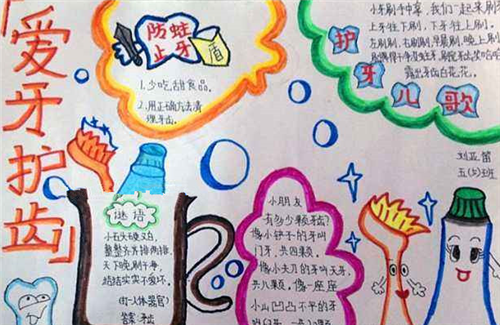 「爱牙护齿」
防蛀
止牙
盾
1.少吃甜食品。
2.用正确方法清
理牙齿。
小牙刷手中拿,我们一起来刷
上牙往下刷,下牙往上刷。
左刷刷,右刷刷,早晨刷,晚上刷
露出牙齿白花花。
护牙儿歌
五 班
谜语
小石头硬又白,
整整齐齐排两排,
天下晚刷干净,
结结实实不爱坏。
(打一人体器官)
答案:牙齿
小朋友
有多少颗牙齿?
像铲子的牙叫
门牙,共四颗。
像小夹刀的牙叫犬牙,
共八颗。像一座座
小山凹凸不平的牙